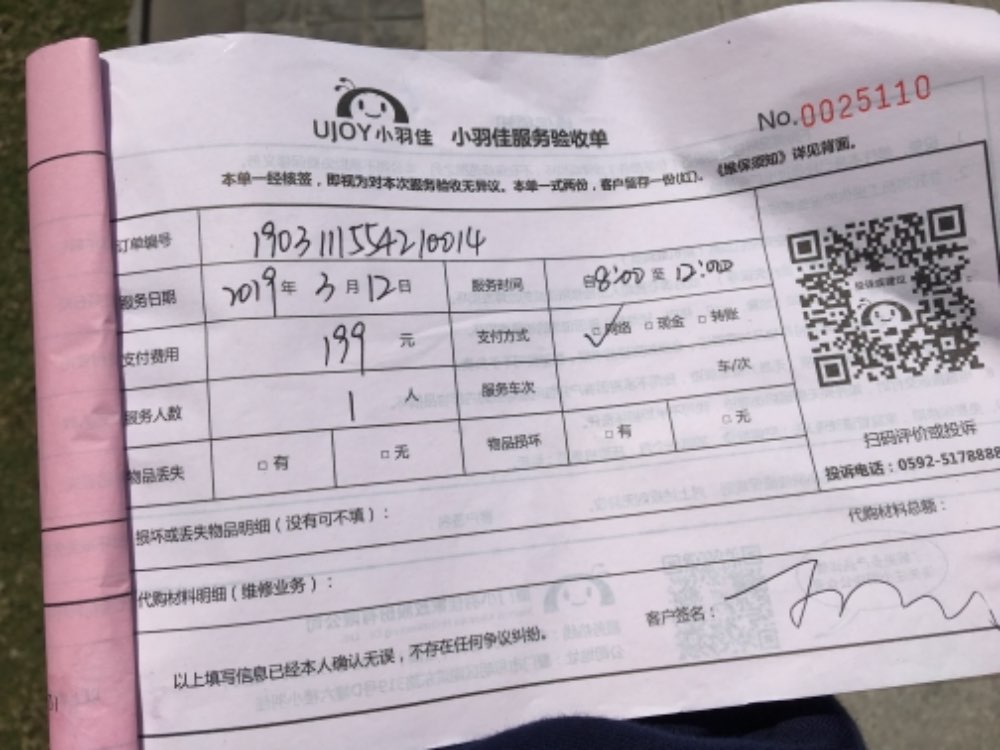 No.0025110
UJOY小羽佳 小羽佳服务验收单
本单一经核签，即视为对本次服务验收无异议。本单一式两份，客户留存一份(红)。《维保须知》详见背面。
订单编号 1903111554210014
服务日期 2019年3月12日 服务时间 8:00至12:00
支付费用 199元 支付方式 ☑网络 □现金 □转账
服务人数 1人 服务车次 车/次
物品丢失 □有 □无 物品损坏 □有 □无
投诉或建议
扫码评价或投诉
投诉电话：0592-5178888
损坏或丢失物品明细（没有可不填）：
代购材料明细（维修业务）： 代购材料总额：
客户签名：
以上填写信息已经本人确认无误，不存在任何争议纠纷。